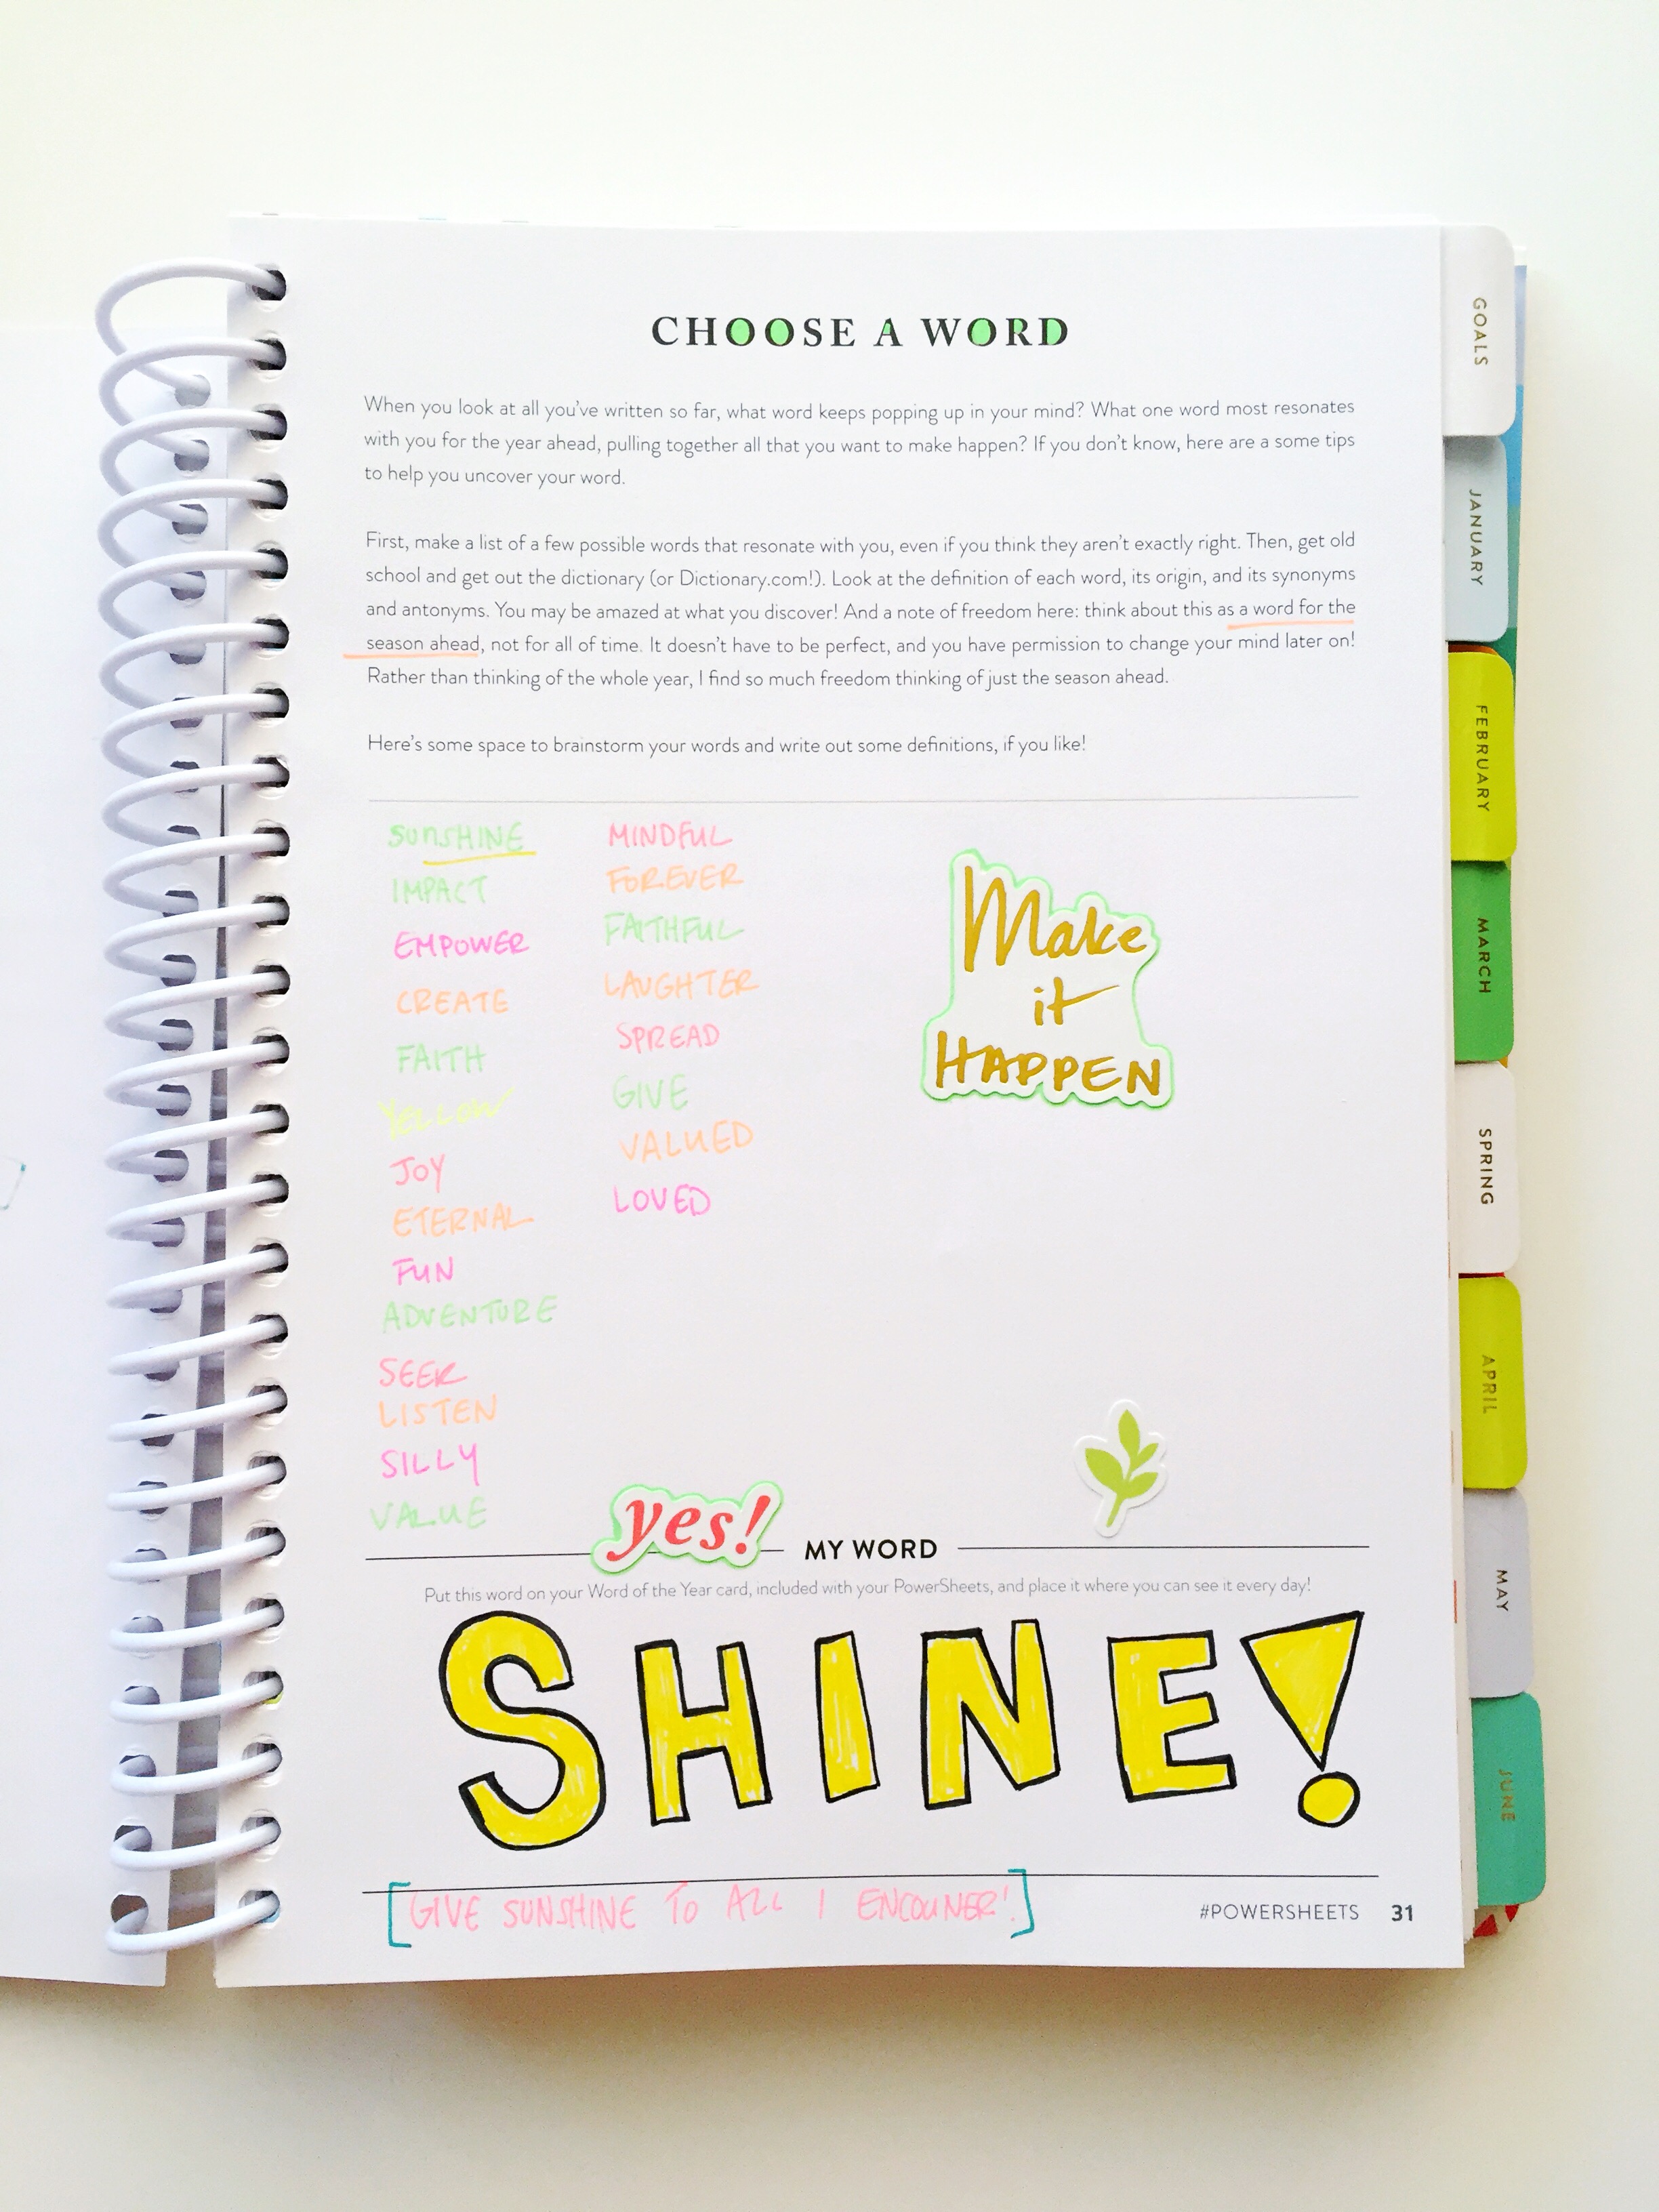 CHOOSE A WORD
When you look at all you've written so far, what word keeps popping up in your mind? What one word most resonates
with you for the year ahead, pulling together all that you want to make happen? If you don't know, here are a some tips
to help you uncover your word.
First, make a list of a few possible words that resonate with you, even if you think they aren't exactly right. Then, get old
school and get out the dictionary (or Dictionary.com!). Look at the definition of each word, its origin, and its synonyms
and antonyms. You may be amazed at what you discover! And a note of freedom here: think about this as a word for the
season ahead, not for all of time. It doesn't have to be perfect, and you have permission to change your mind later on!
Rather than thinking of the whole year, I find so much freedom thinking of just the season ahead.
Here's some space to brainstorm your words and write out some definitions, if you like!
SUNSHINE
IMPACT
EMPOWER
CREATE
FAITH
YELLOW
JOY
ETERNAL
FUN
ADVENTURE
SEEK
LISTEN
SILLY
VALUE
MINDFUL
FOREVER
FAITHFUL
LAUGHTER
SPREAD
GIVE
VALUED
LOVED
Make
it
HAPPEN
yes!
MY WORD
Put this word on your Word of the Year card, included with your PowerSheets, and place it where you can see it every day!
SHINE!
[GIVE SUNSHINE TO ALL I ENCOUNER!]
#POWERSHEETS 31
GOALS
JANUARY
FEBRUARY
MARCH
SPRING
APRIL
MAY
JUNE